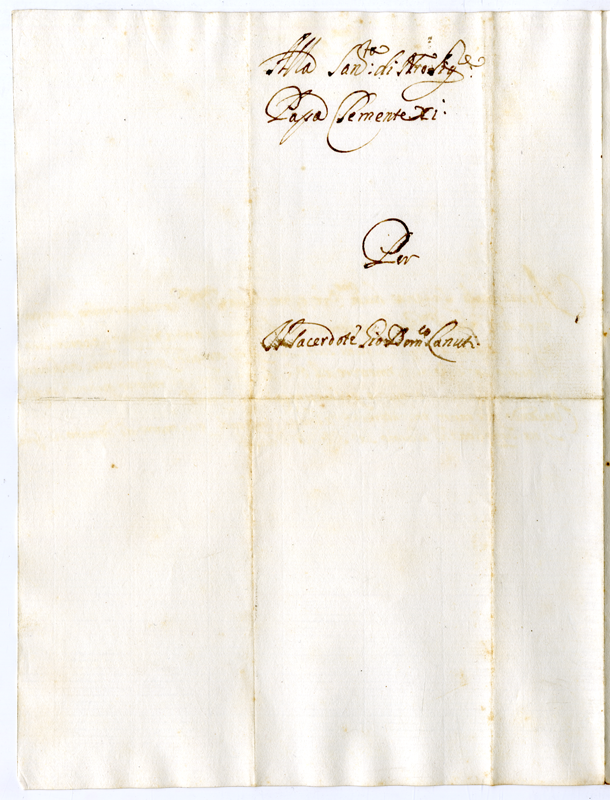 Alla San:tà di Nro Sig:re
Papa Clemente XI:
Per
Il Sacerdote Gio Dom:co Canuti: